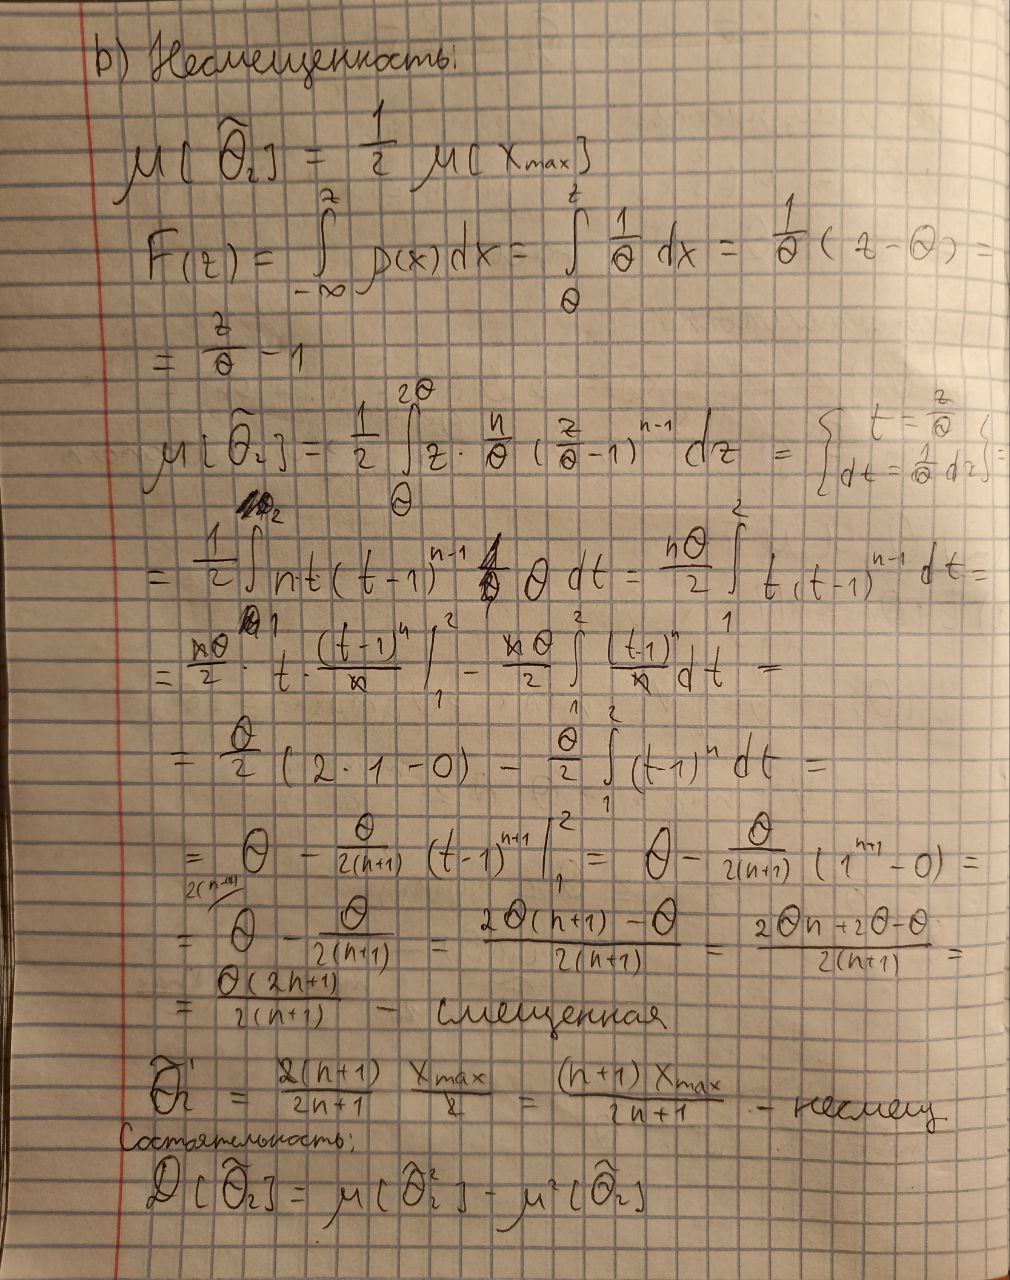 b) Несмещенность:
M[θ̃₂] = 1/2 M[x_max]
F(z) = ∫_{-∞}^{z} p(x)dx = ∫_{θ}^{z} 1/θ dx = 1/θ (z-θ) =
= z/θ - 1
M[θ̃₂] = 1/2 ∫_{θ}^{2θ} z · n/θ (z/θ - 1)^{n-1} dz = { t = z/θ dt = 1/θ dz } =
= 1/2 ∫_{1}^{2} n t (t-1)^{n-1} θ dt = nθ/2 ∫_{1}^{2} t (t-1)^{n-1} dt =
= nθ/2 · t · (t-1)^n/n |_{1}^{2} - nθ/2 ∫_{1}^{2} (t-1)^n/n dt =
= θ/2 (2·1-0) - θ/2 ∫_{1}^{2} (t-1)^n dt =
= θ - θ/2(n+1) (t-1)^{n+1} |_{1}^{2} = θ - θ/2(n+1) (1^{n+1} - 0) =
= θ - θ/2(n+1) = 2θ(n+1) - θ/2(n+1) = 2θn + 2θ - θ/2(n+1) =
= θ(2n+1)/2(n+1) - смещенная
θ̃₂' = 2(n+1)/2n+1 x_max/2 = (n+1) x_max/2n+1 - несмещ
Состоятельность:
D[θ̃₂] = M[θ̃₂²] - M²[θ̃₂]